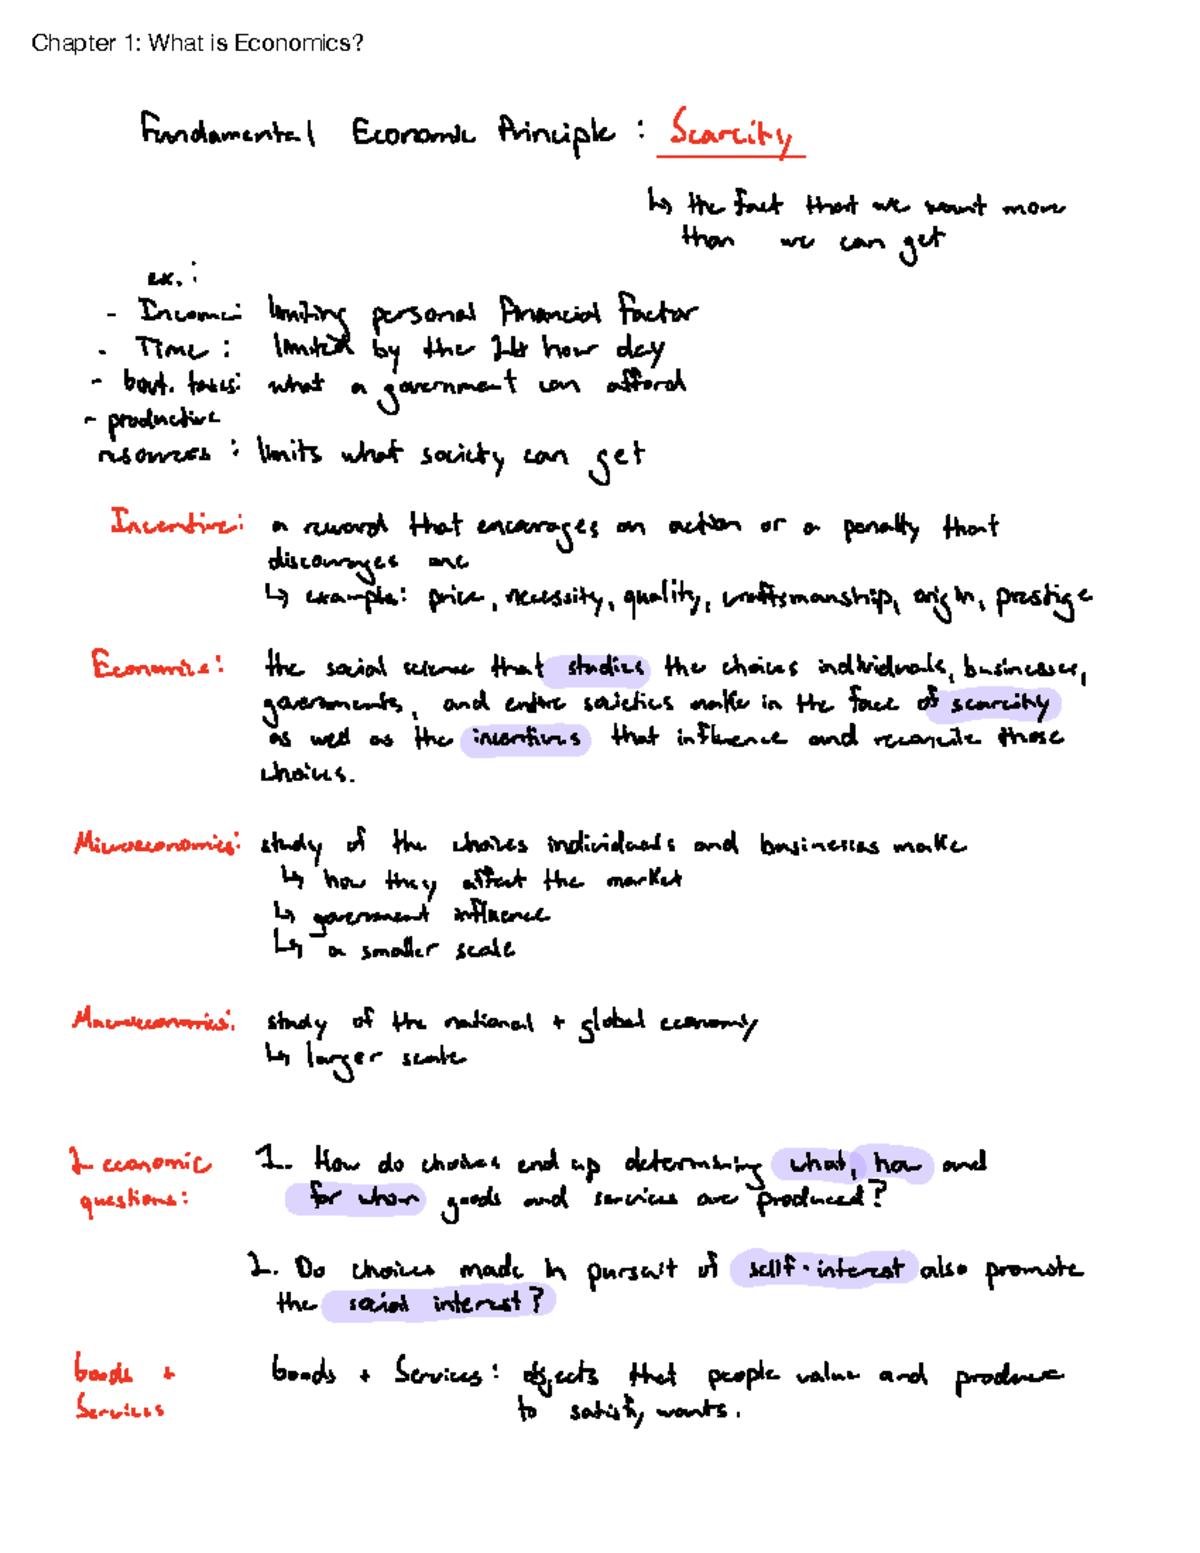 Chapter 1: What is Economics?
Fundamental Economic Principle : Scarcity
↳ the fact that we want more
than we can get
ex. :
- Income: limiting personal financial factor
- Time : limited by the 24 hour day
- Gout. taxes: what a government can afford
- productive
resources : limits what society can get
Incentive: a reward that encourages an action or a penalty that
discourages one
↳ example: price, necessity, quality, craftsmanship, origin, prestige
Economics: the social science that studies the choices individuals, businesses,
governments, and entire societies make in the face of scarcity
as well as the incentives that influence and reconcile those
choices.
Microeconomics: study of the choices individuals and businesses make
↳ how they affect the market
↳ government influence
↳ a smaller scale
Macroeconomics: study of the national + global economy
↳ larger scale
2 economic 1. How do choices end up determining what, how and
questions: for whom goods and services are produced?
2. Do choices made in pursuit of self-interest also promote
the social interest?
Goods + Goods + Services : objects that people value and produce
Services to satisfy wants.